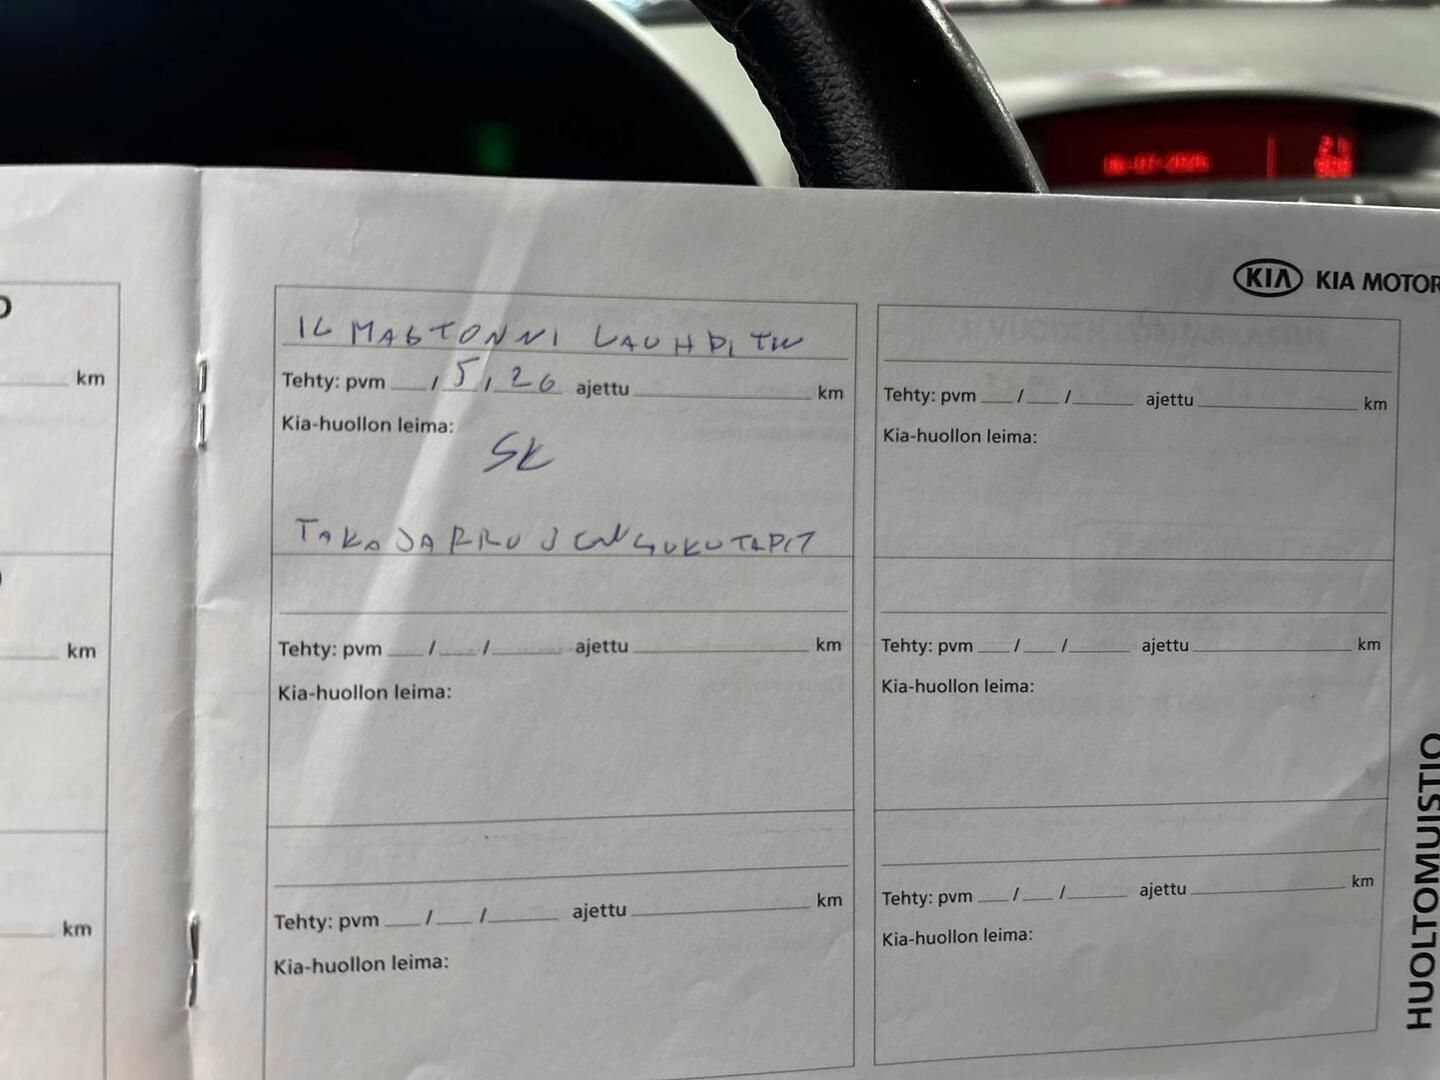 KIA KIA MOTOR
IL MASTONNI LAUHDITIN
Tehty: pvm / 5 / 26 ajettu km
Kia-huollon leima:
SK
TAKA JARRUJEN LIUKUTAPIT
Tehty: pvm / / ajettu km
Kia-huollon leima:
Tehty: pvm / / ajettu km
Kia-huollon leima:
Tehty: pvm / / ajettu km
Kia-huollon leima:
Tehty: pvm / / ajettu km
Kia-huollon leima:
Tehty: pvm / / ajettu km
Kia-huollon leima:
HUOLTOMUISTIO
km
km
km